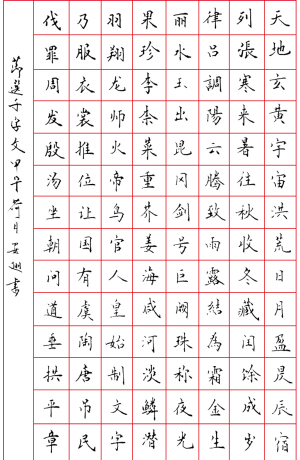 天地玄黄宇宙洪荒日月盈昃辰宿
列張寒来暑往秋收冬藏闰馀成岁
律吕調陽云腾致雨露結為霜金生
丽水玉出昆冈剑号巨阙珠称夜光
果珍李柰菜重芥姜海咸河淡鳞潜
羽翔龙师火帝鸟官人皇始制文字
乃服衣裳推位让国有虞陶唐吊民
伐罪周发殷汤坐朝问道垂拱平章
节選千字文甲午荷月書